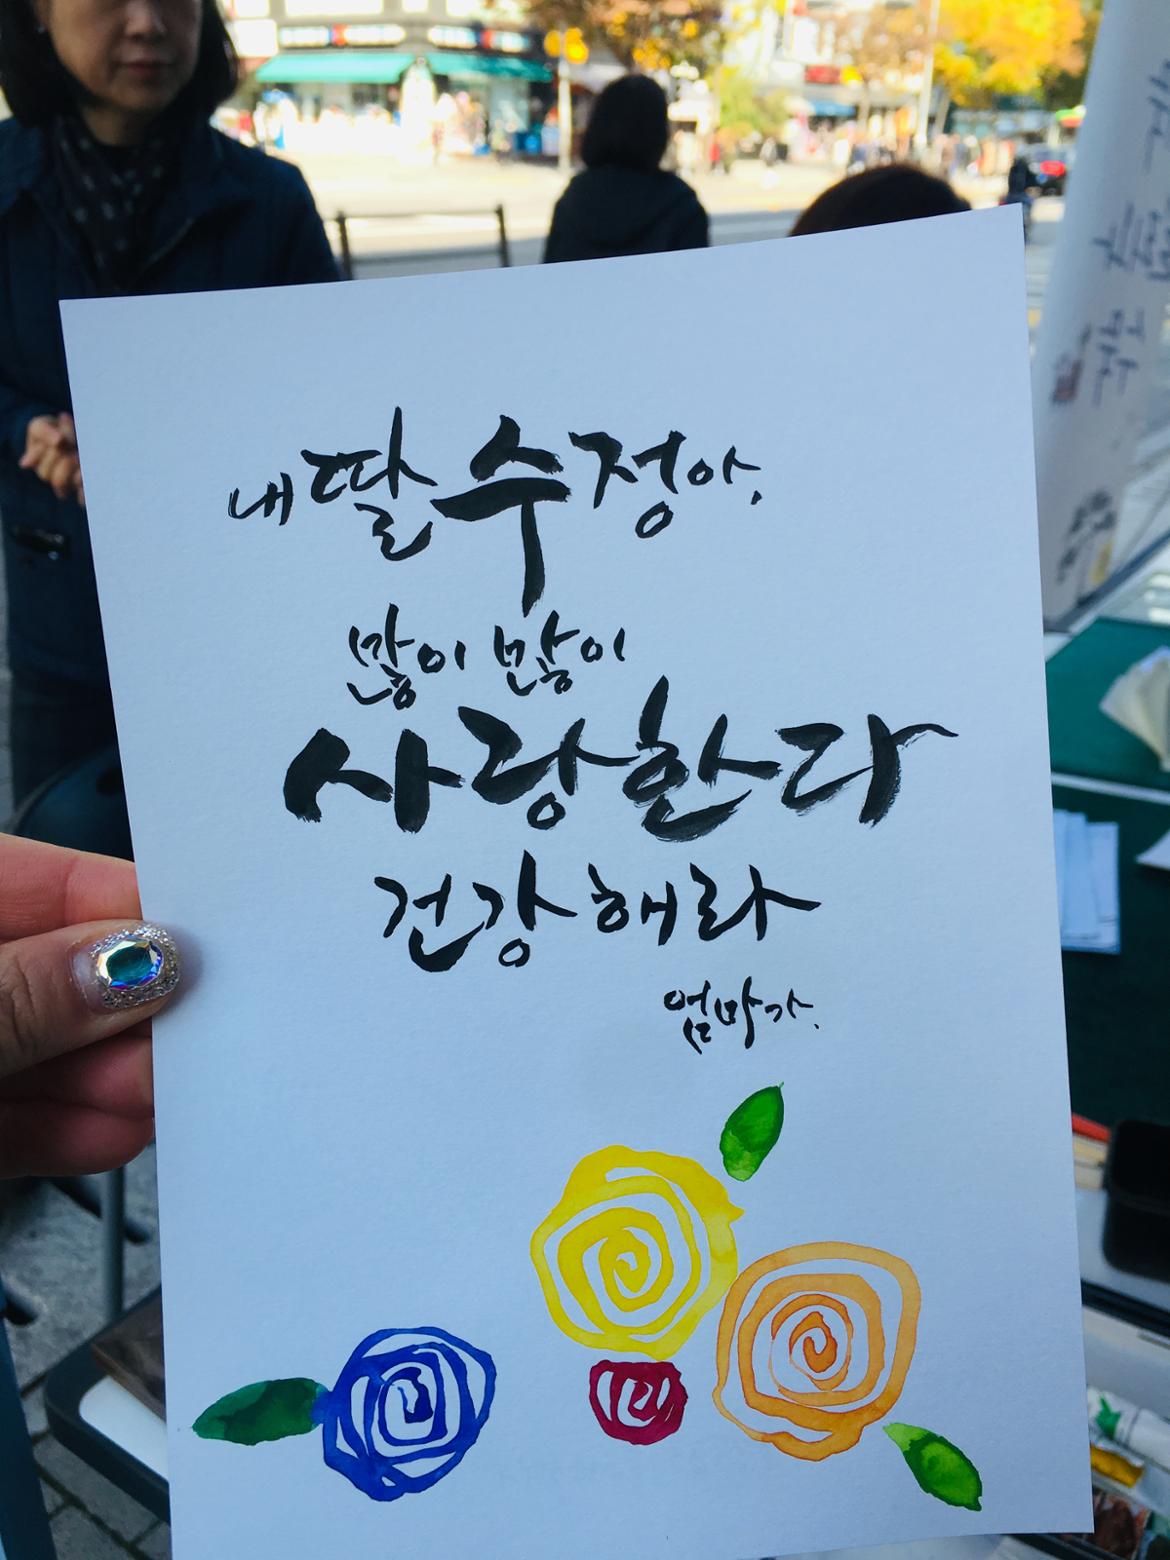 내 딸 수정아.
많이 많이
사랑한다
건강해라
엄마가.